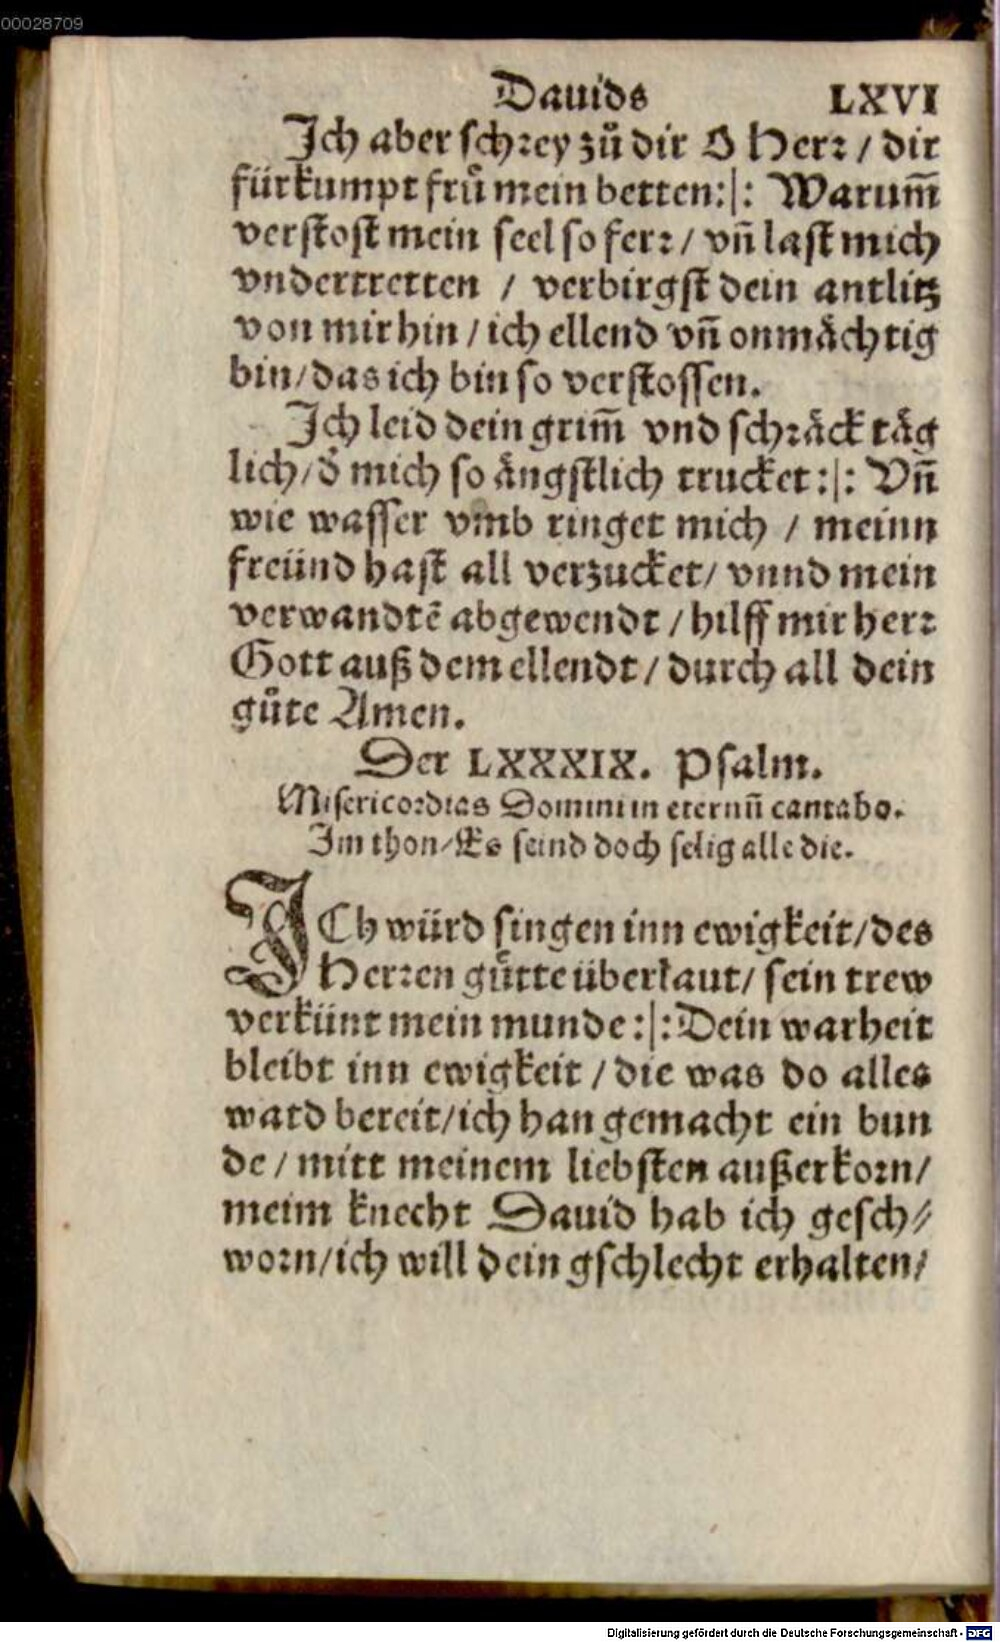 00028709
Dauids LXVI
Jch aber schrey zů dir O Herr / dir
fürkumpt frů mein betten:|: Warum̃
verstost mein seel so ferr / vñ last mich
vndertretten / verbirgst dein antlitz
von mir hin / ich ellend vñ onmächtig
bin / das ich bin so verstossen.
Jch leid dein grim̃ vnd schräck täg
lich / d̕ mich so ängstlich trucket:|: Vñ
wie wasser vmb ringet mich / meinn
freünd hast all verzucket / vnnd mein
verwandtẽ abgewendt / hilff mir herr
Gott auß dem ellendt / durch all dein
gůte Amen.
Der LXXXIX. Psalm.
Misericordias Domini in eternũ cantabo.
Im thon / Es seind doch selig alle die.
JCh würd singen inn ewigkeit / des
Herren gůtte überlaut / sein trew
verkünt mein munde:|: Dein warheit
bleibt inn ewigkeit / die was do alles
ward bereit / ich han gemacht ein bun
de / mitt meinem liebsten außerkorn /
meim knecht Dauid hab ich gesch⸗
worn / ich will dein gschlecht erhalten /
Digitalisierung gefördert durch die Deutsche Forschungsgemeinschaft - DFG